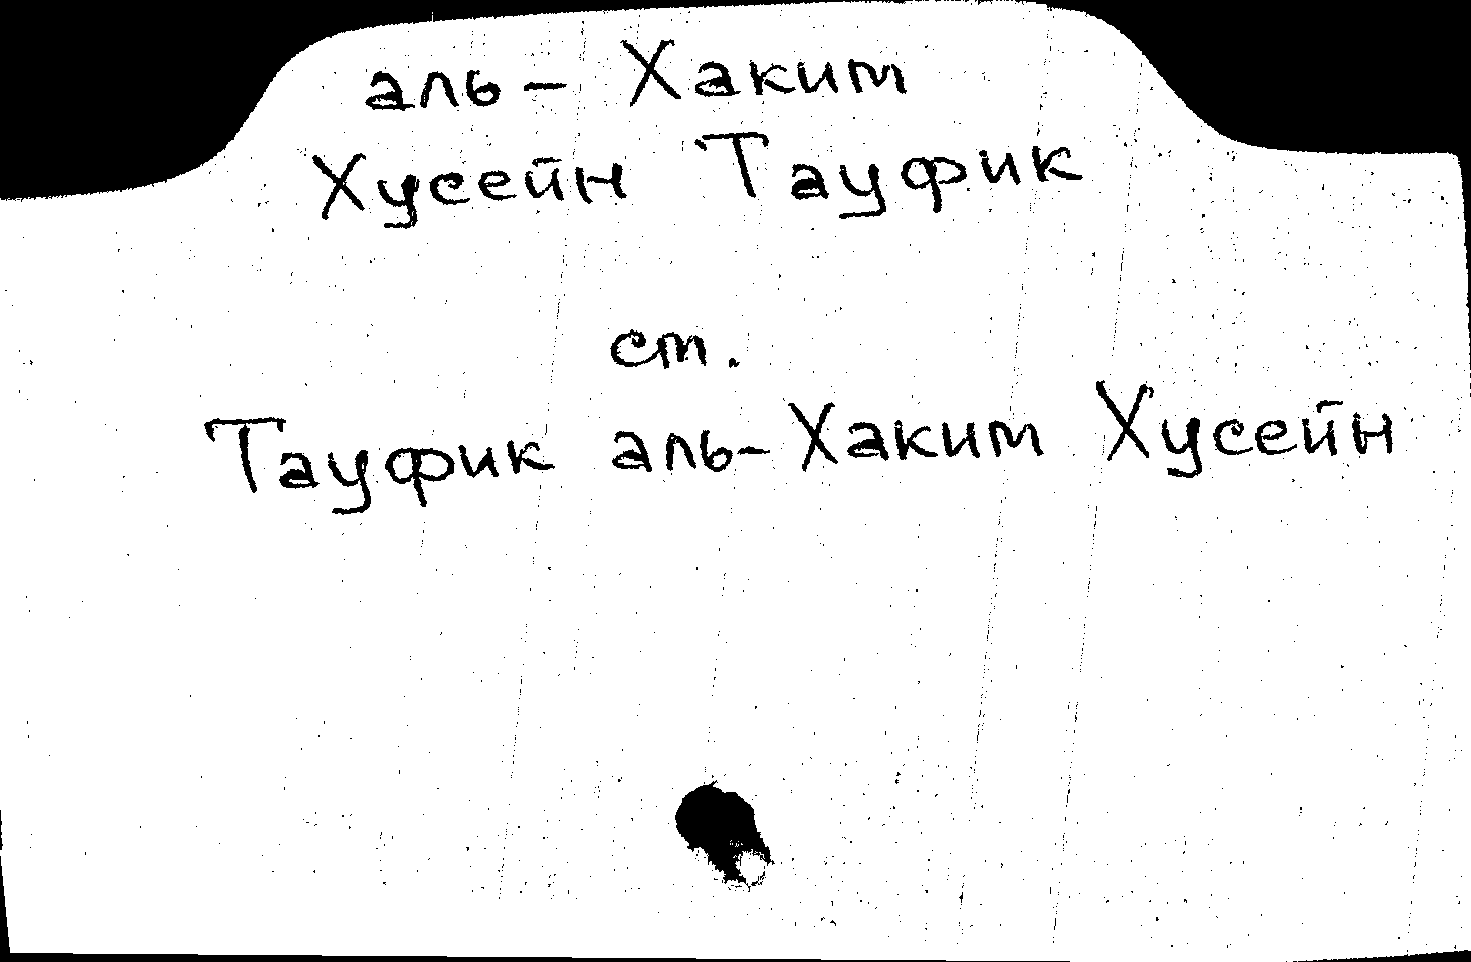 аль - Хаким
Хусейн Тауфик
ст.
Тауфик аль-Хаким Хусейн